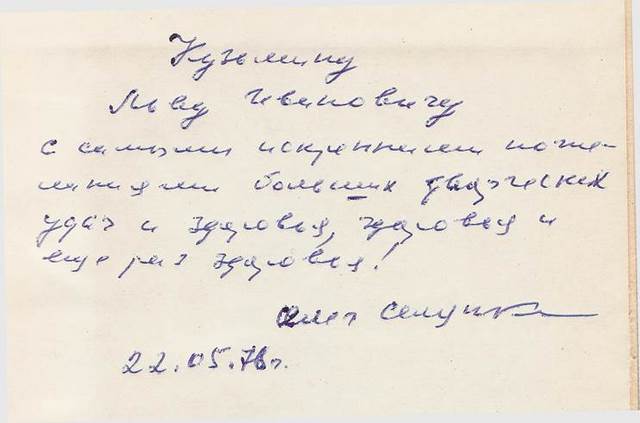 Кузьмину
Льву Ивановичу
с самыми искренними поже-
ланиями больших творческих
удач и здоровья, здоровья и
еще раз здоровья!
Олег
22.05.78г.